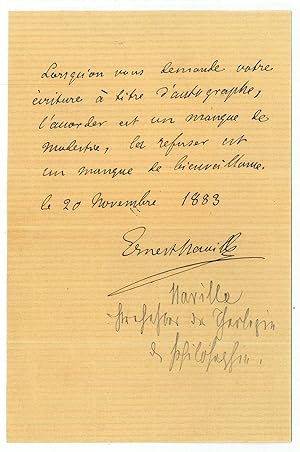 Lorsqu'on vous demande votre
écriture à titre d'autographe,
l'accorder est un manque de
modestie, la refuser est
un manque de bienveillance.
le 20 Novembre 1883
Ernest Naville
Naville
Professor der Theologie
& Philosophie.